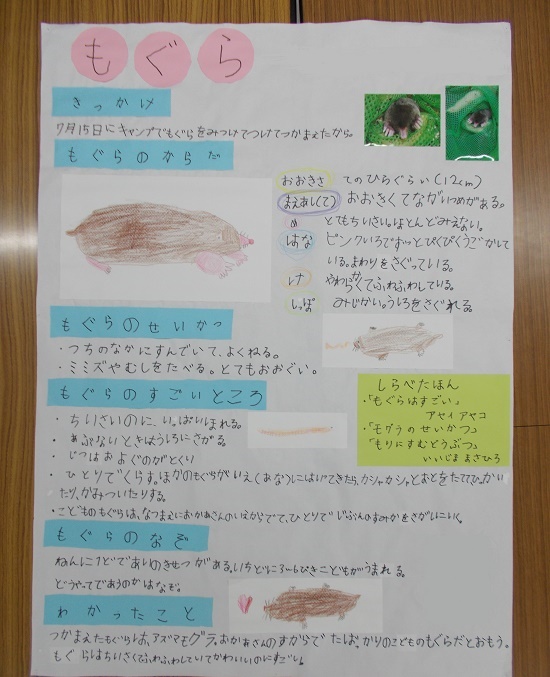 もぐら
きっかけ
7月15日にキャンプでもぐらをみつけてつけてつかまえたから。
もぐらのからだ
おおきさ てのひらぐらい(12cm)
まえあし(て) おおきくてながいつめがある。
め とてもちいさい。ほとんどみえない。
はな ピンクいろでずっとぴくぴくうごかして
いる。まわりをさぐっている。
け やわらかくてふわふわしている。
しっぽ みじかい。うしろをさぐれる。
もぐらのせいかつ
・つちのなかにすんでいて、よくねる。
・ミミズやむしをたべる。とてもおおぐい。
もぐらのすごいところ
・ちいさいのに、いっぱいほれる。
・あぶないときはうしろにさがる。
・じつはおよぐのがとくい
・ひとりでくらす。ほかのもぐらがいえ(あな)にはいってきたら、カシャカシャとおとをたててひっかい
たり、かみついたりする。
・こどものもぐらは、なつまえにおかあさんのいえからでて、ひとりでじぶんのすみかをさがしにいく。
しらべたほん
・「もぐらはすごい」
アヤイアヤコ
・「モグラのせいかつ」
・「もりにすむどうぶつ」
いいじままさひろ
もぐらのなぞ
ねんに1どであいのきせつがある。いちどに3~6ぴきこどもがうまれる。
どうやってであうのかはなぞ。
わかったこと
つかまえたもぐらは、アズマモグラ。おかあさんのすからでたばっかりのこどものもぐらだとおもう。
もぐらはちいさくてふわふわしていてかわいいのにすごい。